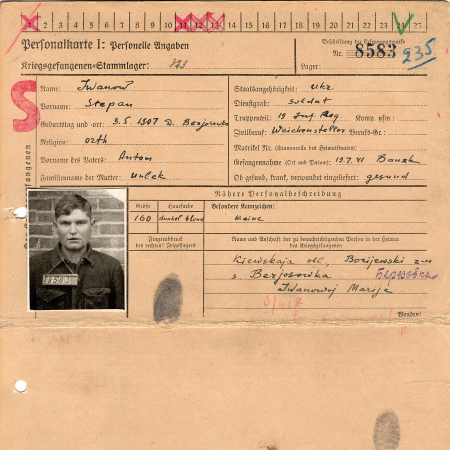 1 2 3 4 5 6 7 8 9 10 11 12 13 14 15 16 17 18 19 20 21 22 23 24 25
Personalkarte I: Personelle Angaben
Beschriftung der Erkennungsmarke
Nr. 8583 235
Kriegsgefangenen-Stammlager: 323
Lager:
S
Name: Iwanow
Vorname: Stepan
Geburtstag und -ort: 3.5.1907 D. Berjosowka
Religion: orth
Vorname des Vaters: Anton
Familienname der Mutter:
Staatsangehörigkeit: Ukr.
Dienstgrad: Soldat
Truppenteil: 19 Inf. Reg. Komp. usw.:
Zivilberuf: Weichensteller Berufs-Gr.:
Matrikel Nr. (Stammrolle des Heimatstaates):
Gefangennahme (Ort und Datum): 19.7.41
Ob gesund, krank, verwundet eingeliefert: gesund
des Kriegsgefangenen
8583
Nähere Personalbeschreibung
Größe Haarfarbe Besondere Kennzeichen:
160 dunkel blond keine
Fingerabdruck
des rechten! Zeigefingers
Name und Anschrift der zu benachrichtigenden Person in der Heimat
des Kriegsgefangenen
Kjewskaja obl.,
s. Berjosowka Березовка
Iwanowoj Marija
Wenden!